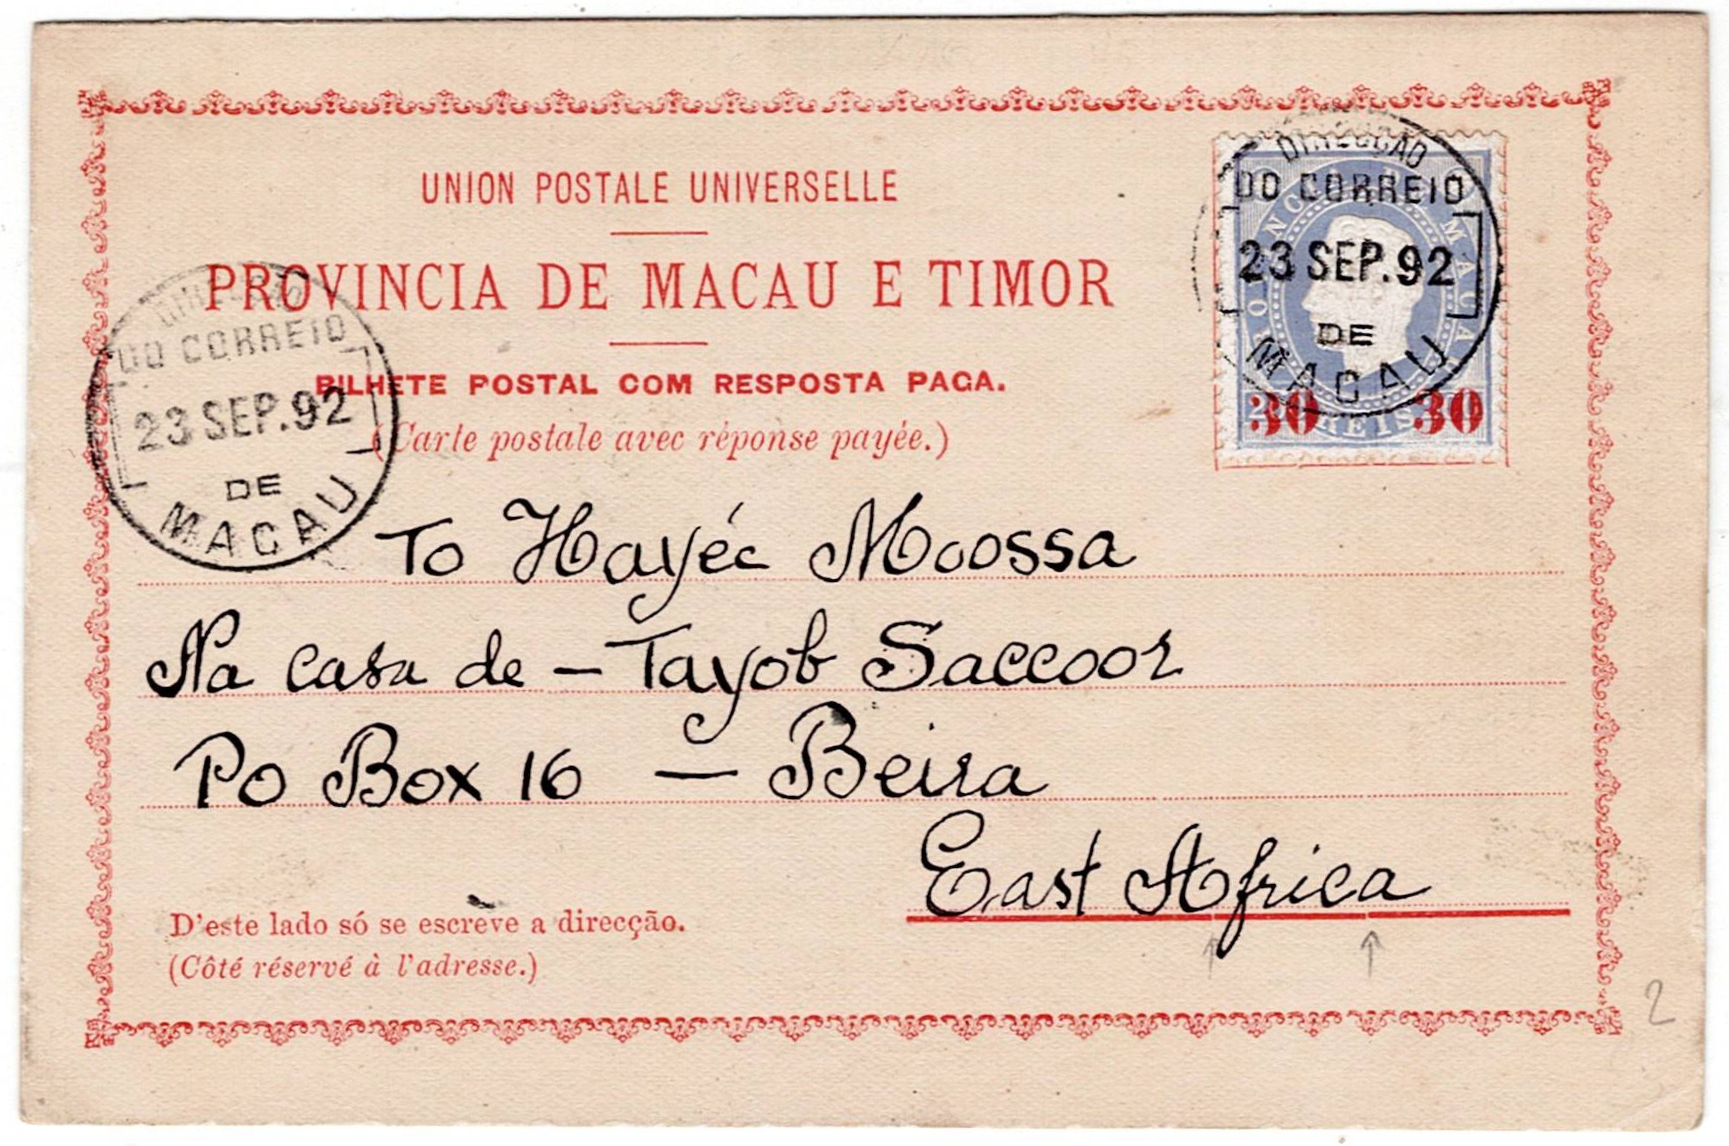 UNION POSTALE UNIVERSELLE
PROVINCIA DE MACAU E TIMOR
BILHETE POSTAL COM RESPOSTA PAGA.
(Carte postale avec réponse payée.)
DIRECÇÃO
DO CORREIO
23 SEP. 92
DE
MACAU
MACAU
REIS
30 30
DIRECÇÃO
DO CORREIO
23 SEP. 92
DE
MACAU
To Hayéc Moossa
Na casa de — Tayob Saccoor
Po Box 16 — Beira
East Africa
D'este lado só se escreve a direcção.
(Côté réservé à l'adresse.)
2